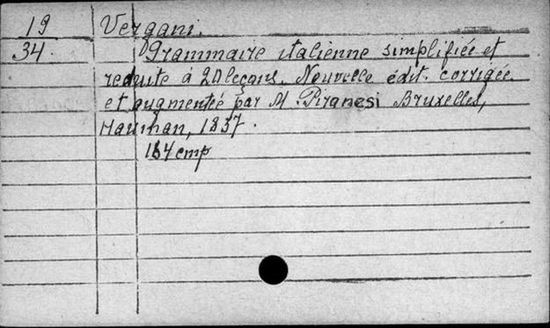 19 Vergani.
34. Grammaire italienne simplifiée et
reduite à 20 leçons. Nouvelle édit. corrigée
et augmentée par M. Piranesi Bruxelles,
Hauman, 1837.
164 стр